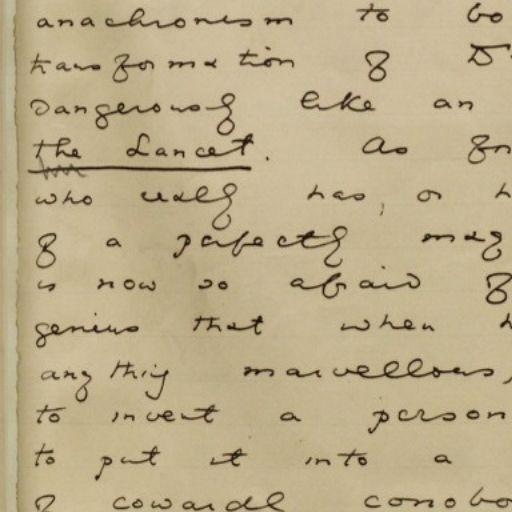 anachronism to bo
transformation of D
Dangerously like an
the Lancet. As for
who really has, or h
of a perfectly mag
is now so afraid of
genius that when h
anything marvellous,
to invent a person
to put it into a
of cowardl corrobo